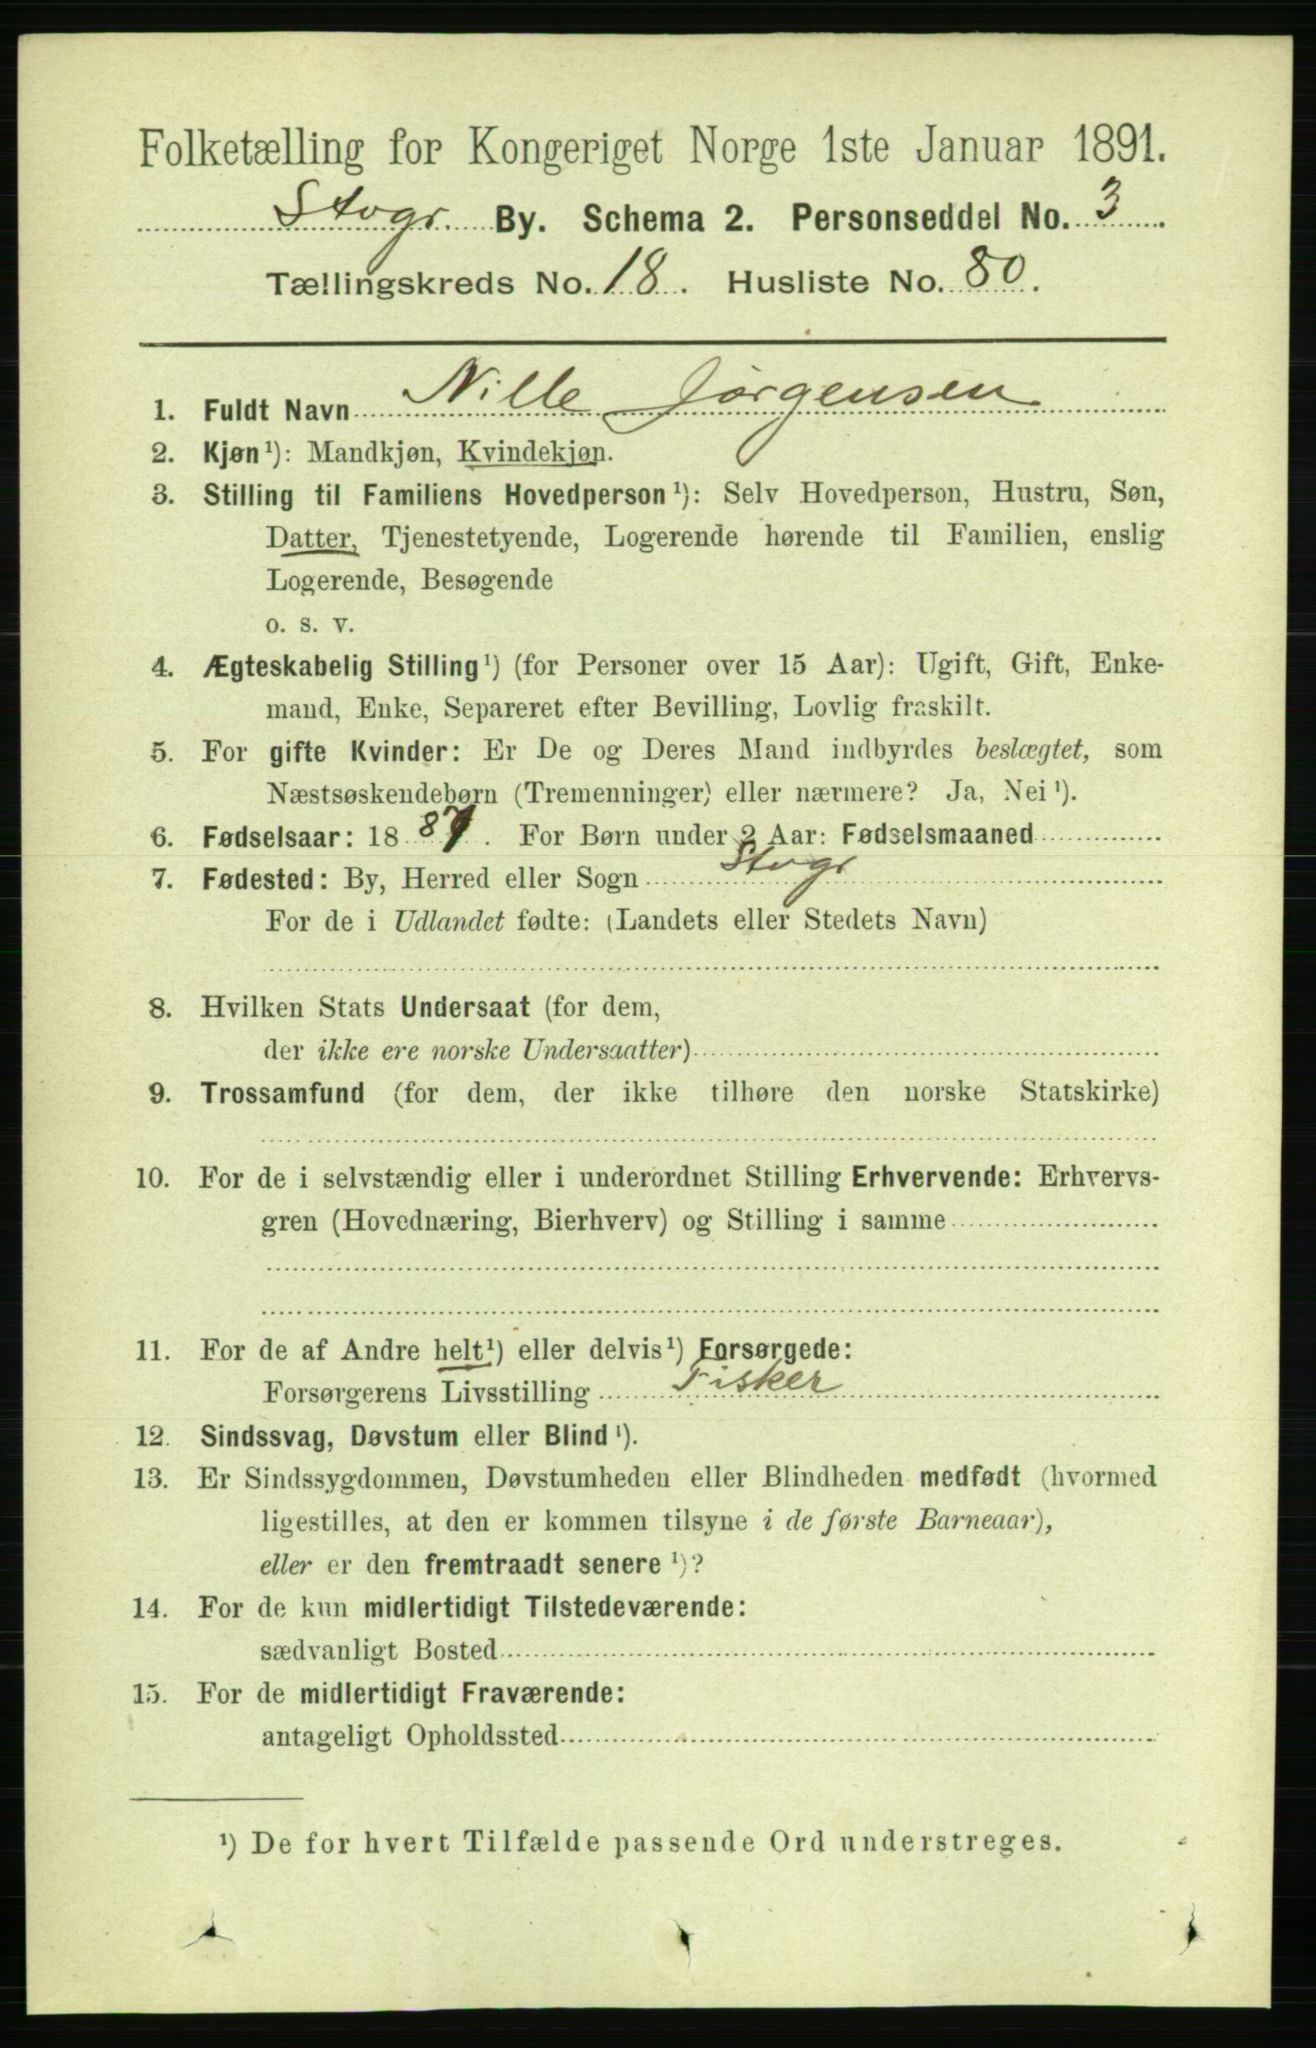 Folketælling for Kongeriget Norge 1ste Januar 1891.
Stvgr. By. Schema 2. Personseddel No. 3
Tællingskreds No. 18. Husliste No. 80.
1. Fuldt Navn Nille Jørgensen
2. Kjøn¹): Mandkjøn, Kvindekjøn.
3. Stilling til Familiens Hovedperson¹): Selv Hovedperson, Hustru, Søn,
Datter, Tjenestetyende, Logerende hørende til Familien, enslig
Logerende, Besøgende
o. s. v.
4. Ægteskabelig Stilling¹) (for Personer over 15 Aar): Ugift, Gift, Enke-
mand, Enke, Separeret efter Bevilling, Lovlig fraskilt.
5. For gifte Kvinder: Er De og Deres Mand indbyrdes beslægtet, som
Næstsøskendebørn (Tremenninger) eller nærmere? Ja, Nei¹).
6. Fødselsaar: 18 . For Børn under 2 Aar: Fødselsmaaned
7. Fødested: By, Herred eller Sogn Stvgr
For de i Udlandet fødte: (Landets eller Stedets Navn)
8. Hvilken Stats Undersaat (for dem,
der ikke ere norske Undersaatter)
9. Trossamfund (for dem, der ikke tilhøre den norske Statskirke)
10. For de i selvstændig eller i underordnet Stilling Erhvervende: Erhvervs-
gren (Hovednæring, Bierhverv) og Stilling i samme
11. For de af Andre helt¹) eller delvis¹) Forsørgede:
Forsørgerens Livsstilling Fisker
12. Sindssvag, Døvstum eller Blind¹).
13. Er Sindssygdommen, Døvstumheden eller Blindheden medfødt (hvormed
ligestilles, at den er kommen tilsyne i de første Barneaar),
eller er den fremtraadt senere¹)?
14. For de kun midlertidigt Tilstedeværende:
sædvanligt Bosted
15. For de midlertidigt Fraværende:
antageligt Opholdssted
¹) De for hvert Tilfælde passende Ord understreges.